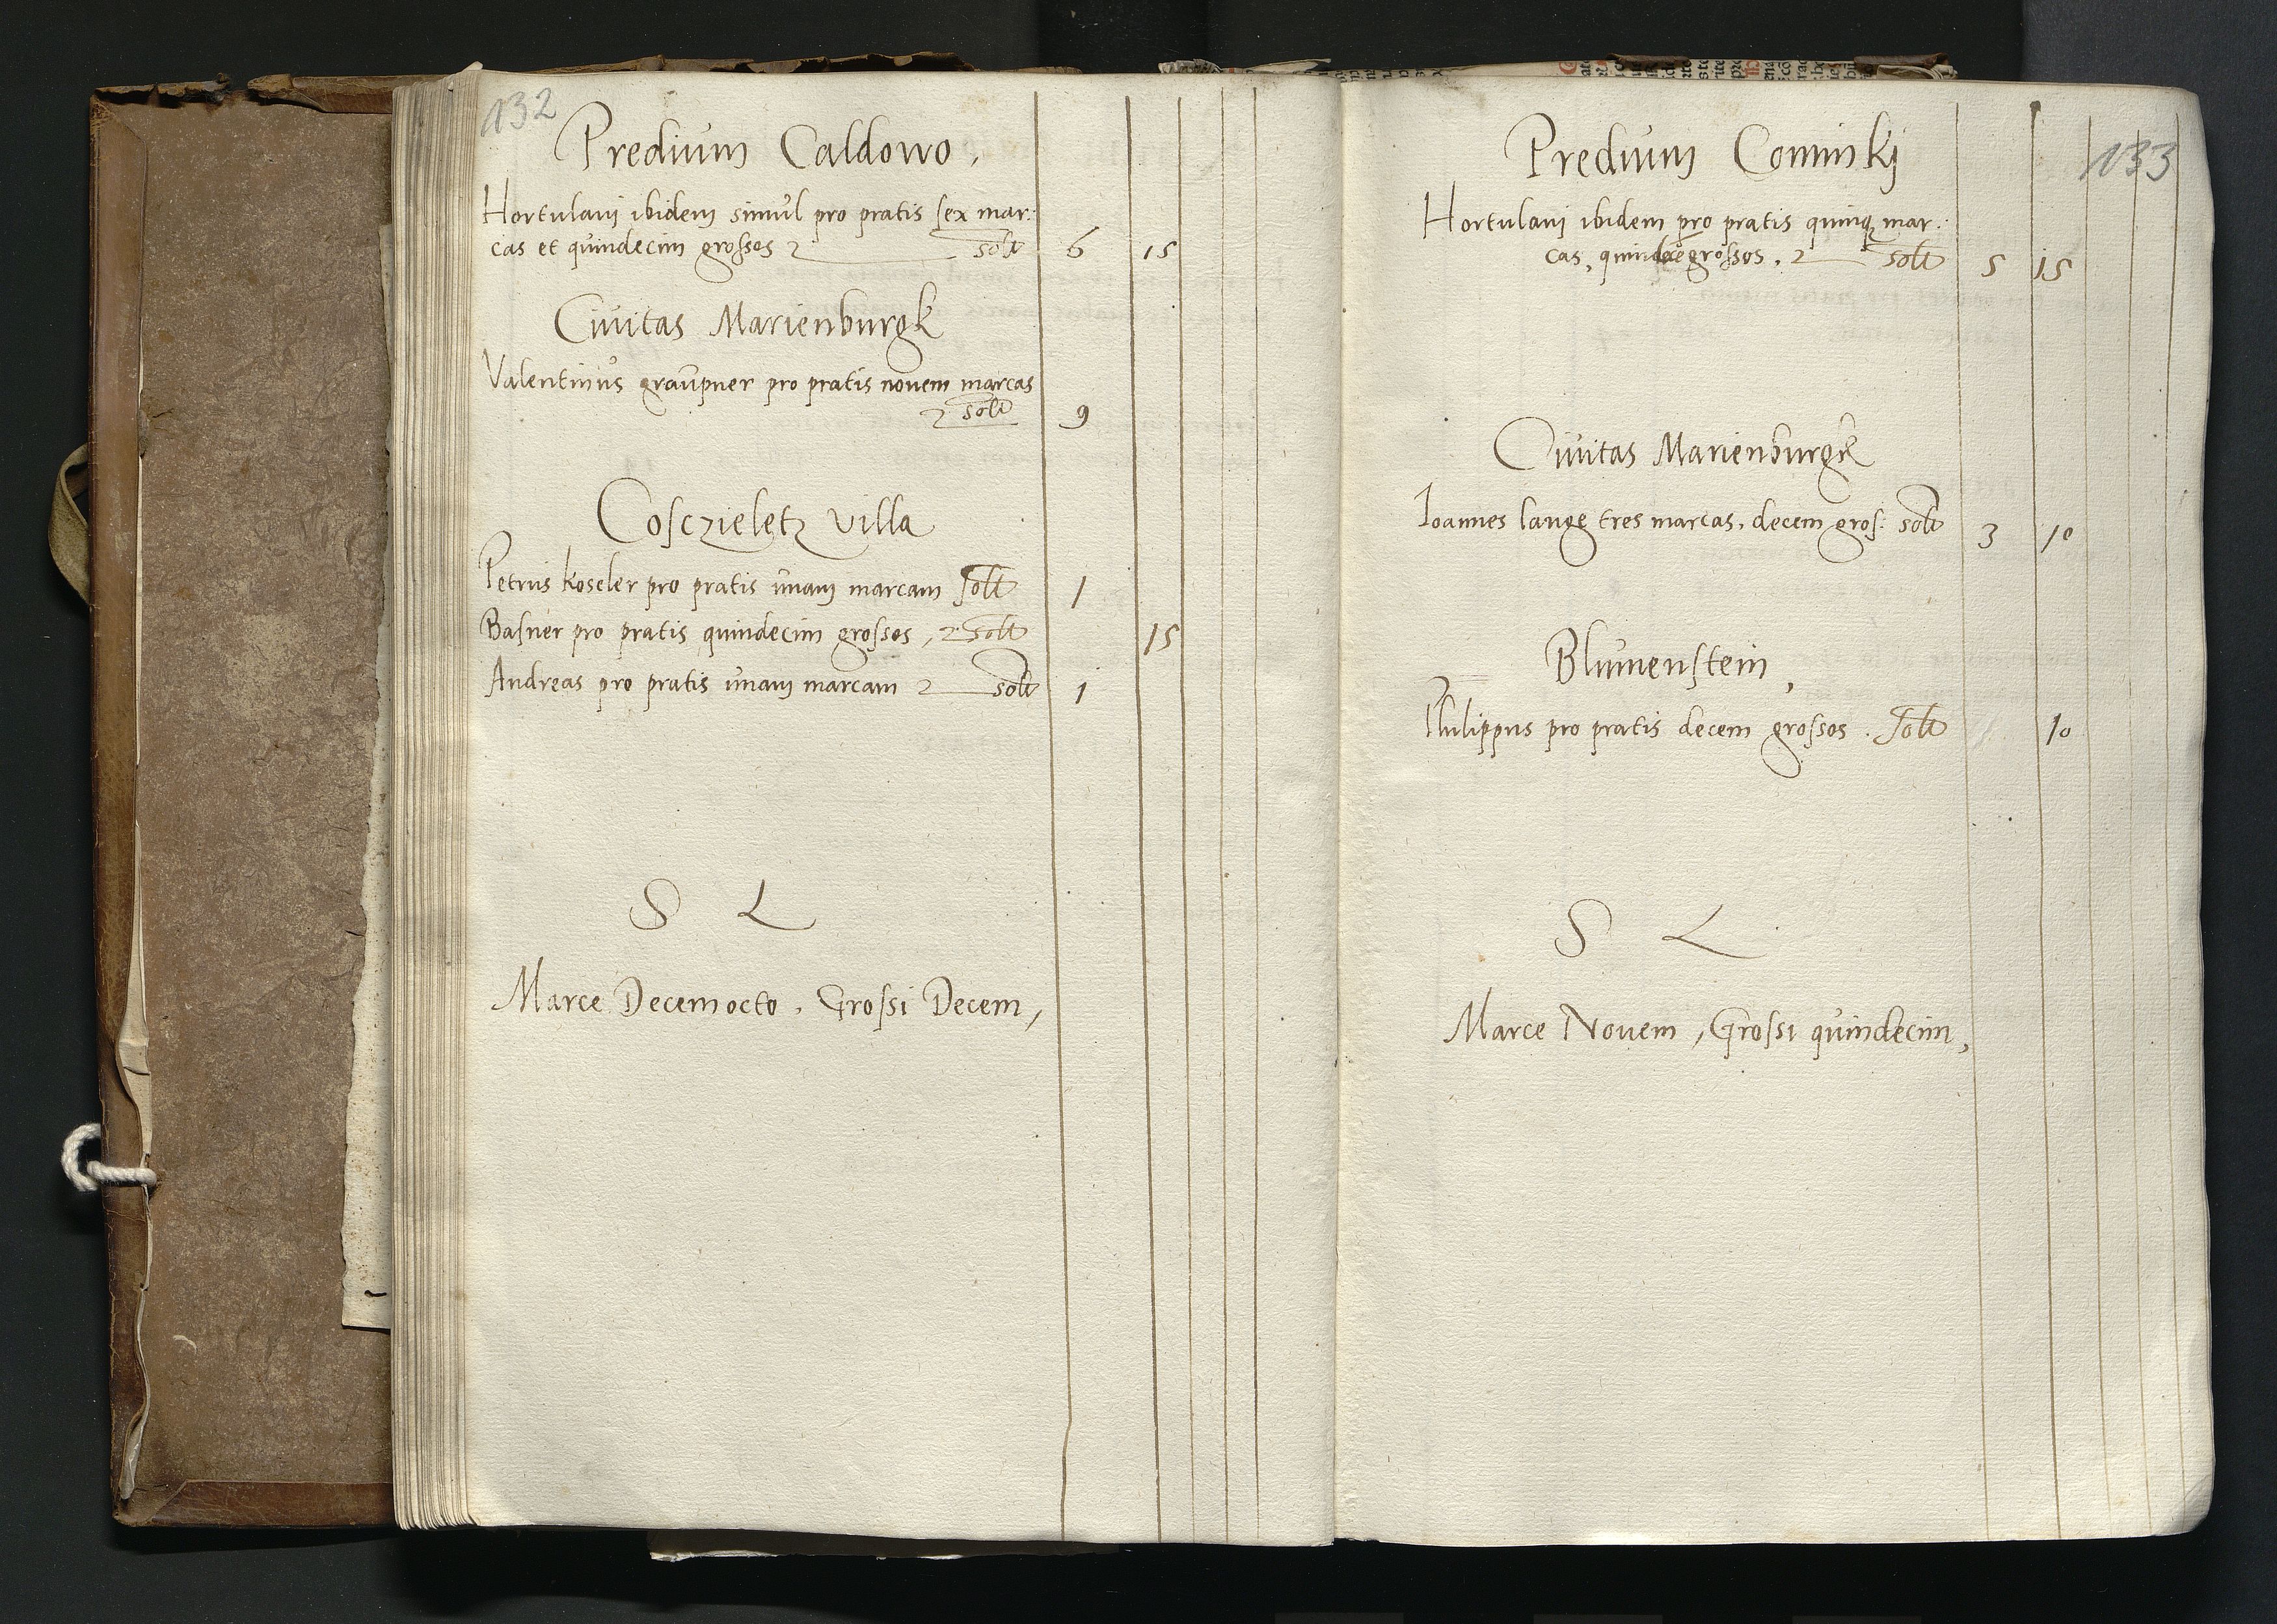 132
Predium Caldowo.
Hortulani ibidem simul pro pratis sex mar:
cas et quindecim grossos solt 6 15
Civitas Marienburgk
Valentinus graupner pro pratis novem marcas
solt 9
Cosczieletz villa
Petrus koseler pro pratis unam marcam solt 1
Basner pro pratis quindecim grossos, solt 15
Andreas pro pratis unam marcam solt 1
S L
Marce Decemocto. Grossi Decem,
133
Predium Cominskj
Hortulani ibidem pro pratis quinq mar:
cas, grossos. solt 5 15
Civitas Marienburgk
Ioannes lange tres marcas. decem gros: solt 3 10
Blumenstein,
Philippus pro pratis decem grossos. solt 10
S L
Marce Novem, Grossi quindecim,